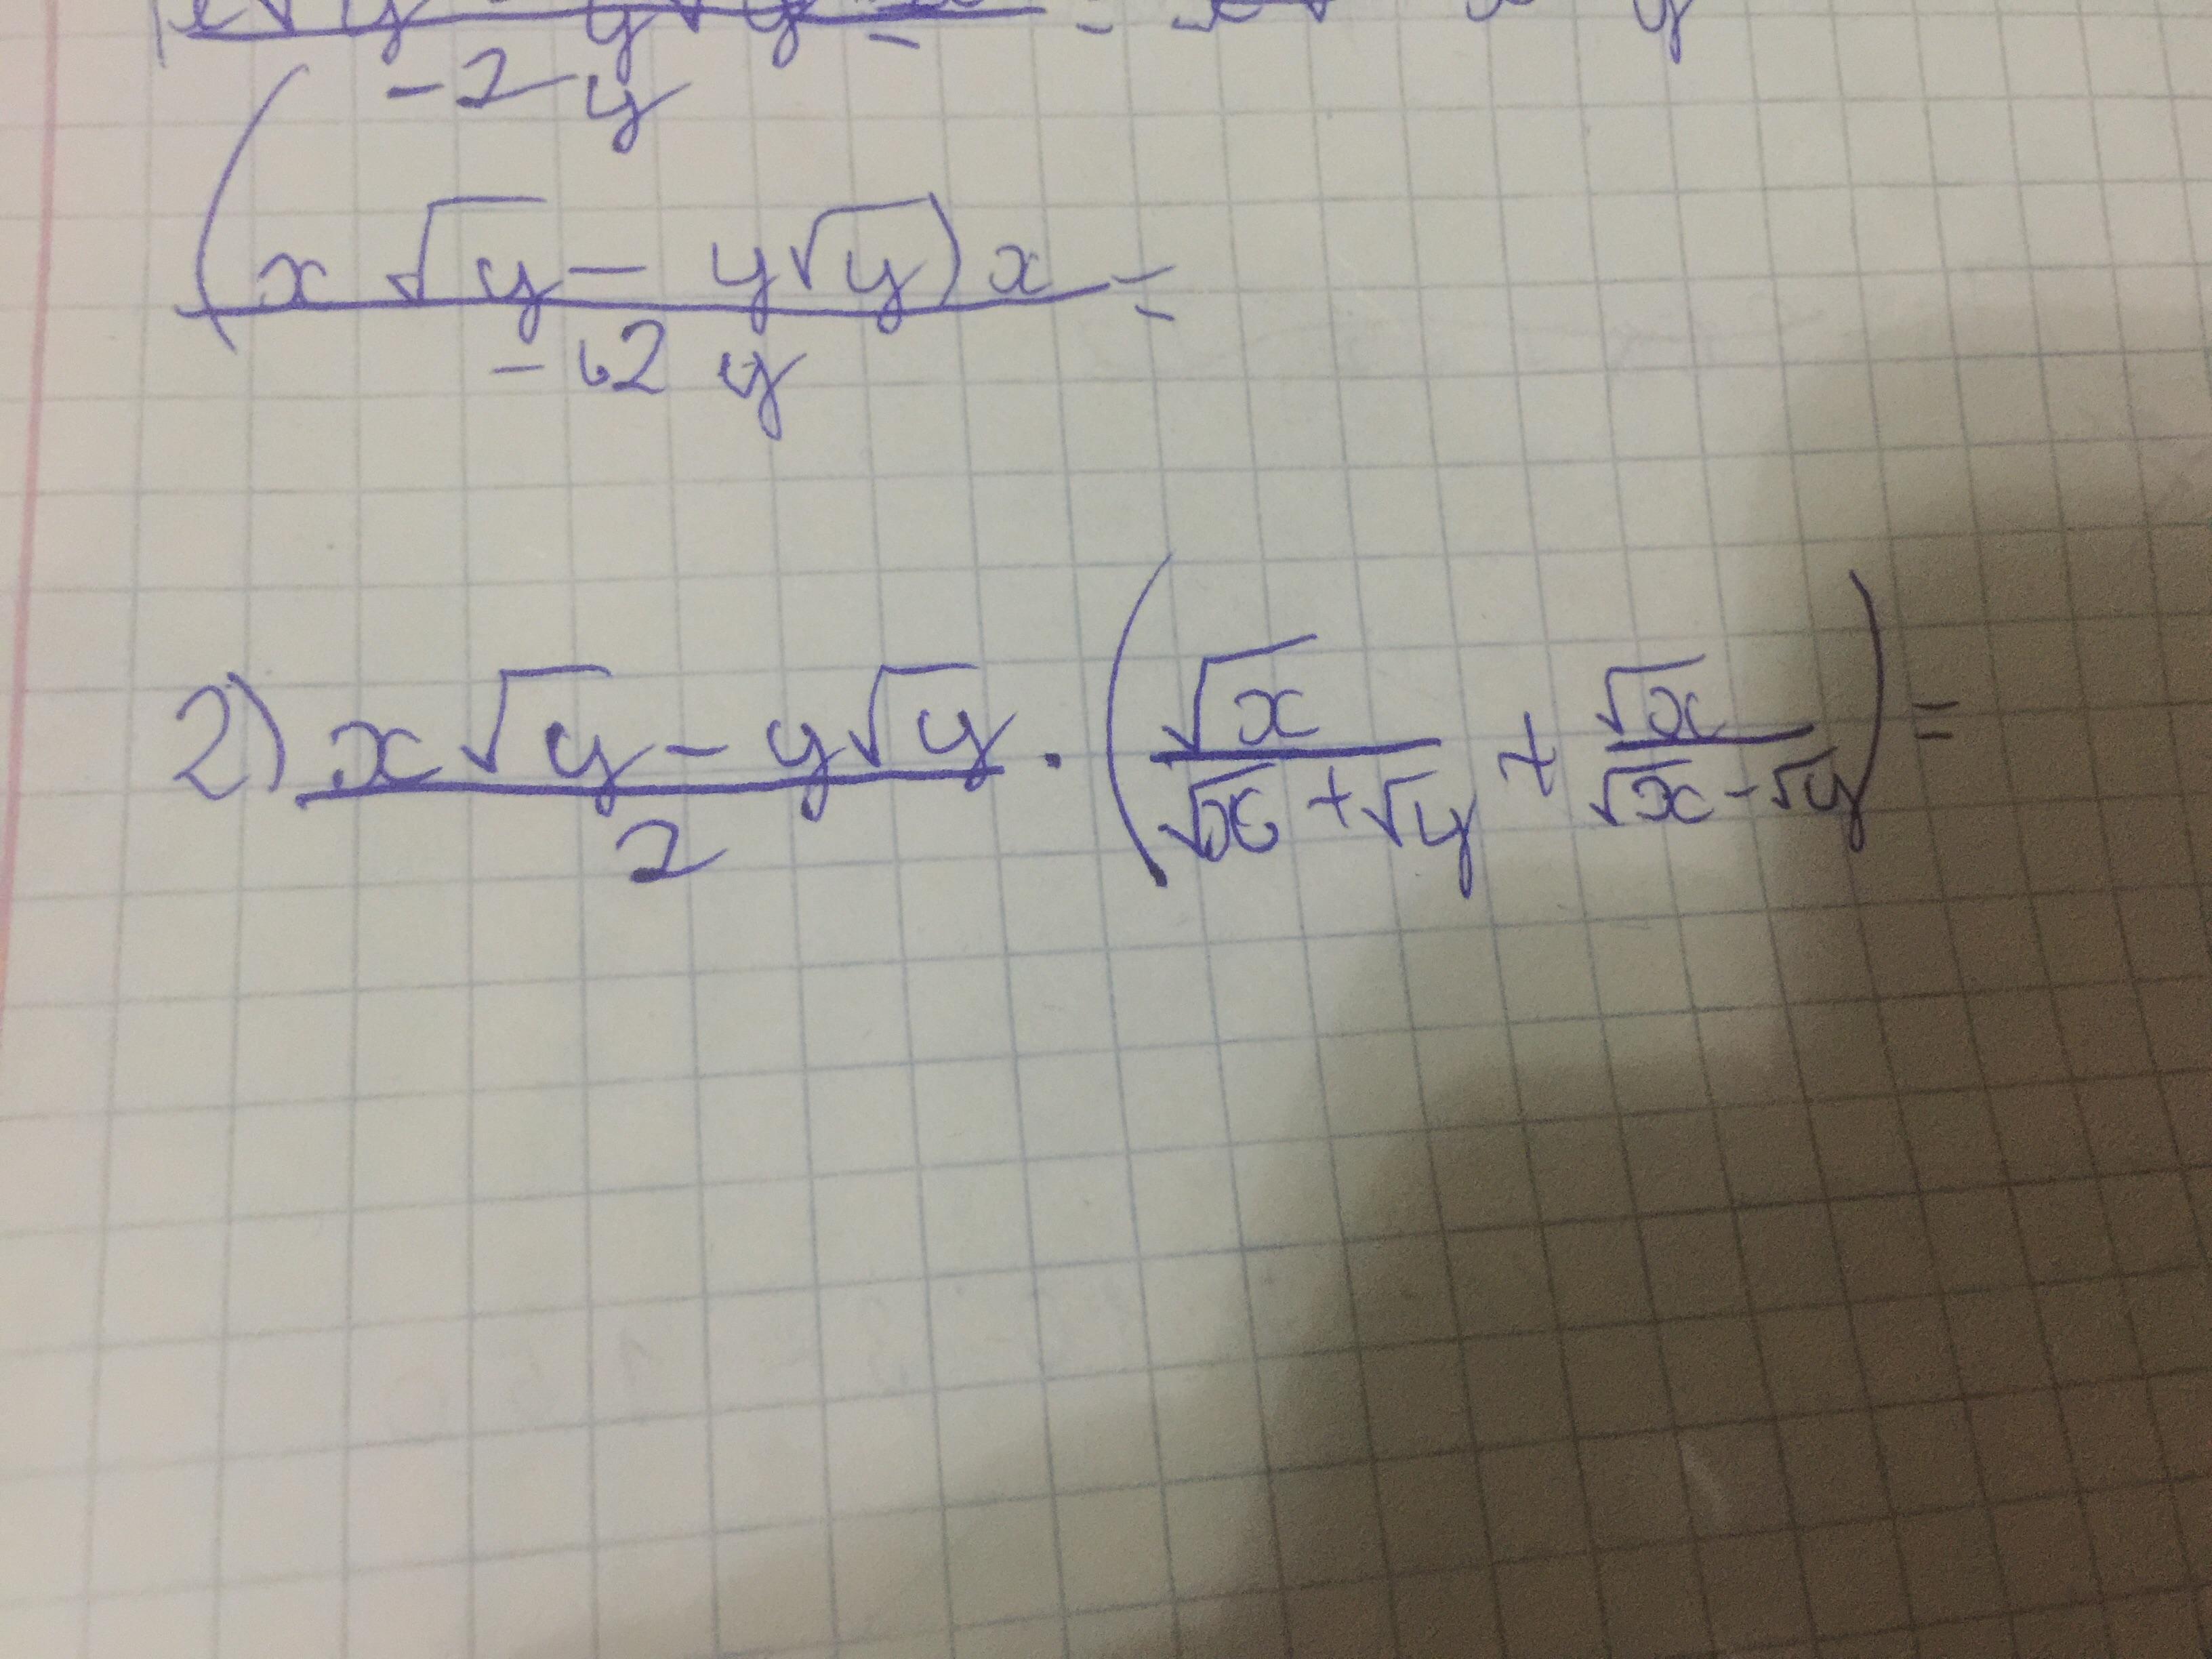 -2y
(x√y - y√y)x =
-2 y
2) x√y - y√y / 2 · (√x / √x + √y + √x / √x - √y) =